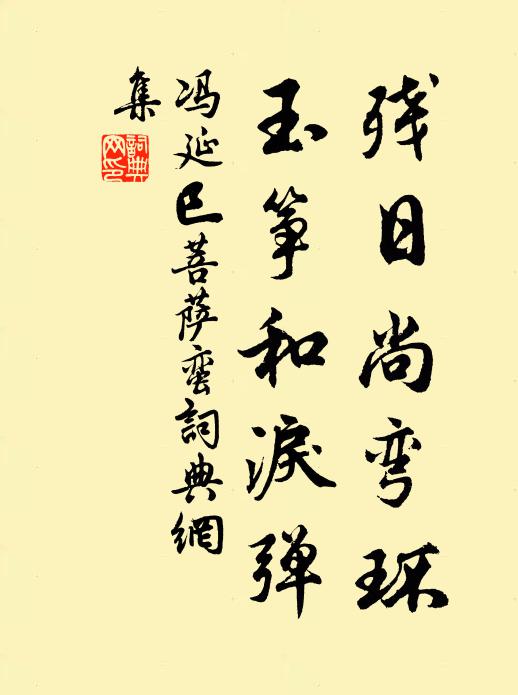 残日尚弯环
玉筝和淚弹
冯延巳菩萨蛮詞典網
集
詞典
网印